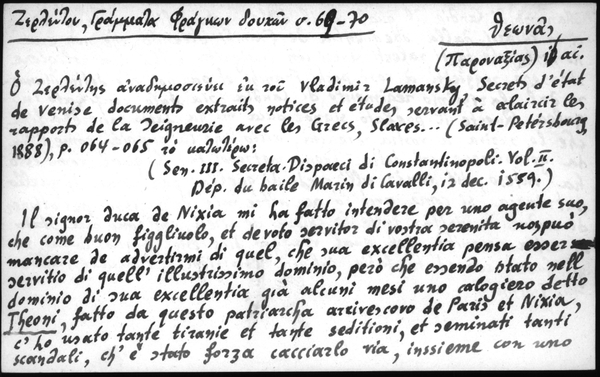 Ζερλέντου, Γράμματα Φράγκων δουκῶν σ. 69-70
Θεωνᾶς
(Παροναξίας) αἰ.
Ὁ Ζερλέντης ἀναδημοσιεύει ἐκ τοῦ Vladimir Lamansky, Secrets d'état
de Venise documents extraits notices et études servant à alaircir les
rapports de la Seigneurie avec les Grecs, Slaves... (Saint-Petérsbourg,
1888), p. 064-065 τὸ κατωτέρω:
(Sen. III. Secreta. Dispacci di Constantinopoli. Vol. II.
Dép. du baile Marin di Cavalli, 12 dec. 1559.)
Il signor duca de Nixia mi ha fatto intendere per uno agente suo,
che come buon figgliuolo, et devoto servitor di vostra serenita nospuò
mancare de advertirmi di quel, che sua excellentia pensa esser
servitio di quell' illustrissimo dominio, però che essendo stato nell
dominio di sua excellentia già alcuni mesi uno calogiero detto
Theoni, fatto da questo patriarcha arrivescovo de Paris et Nixia,
c'ho usato tante tiranie et tante seditioni, et seminati tanti
scandali, ch' è stato forza cacciarlo via, inssieme con uno